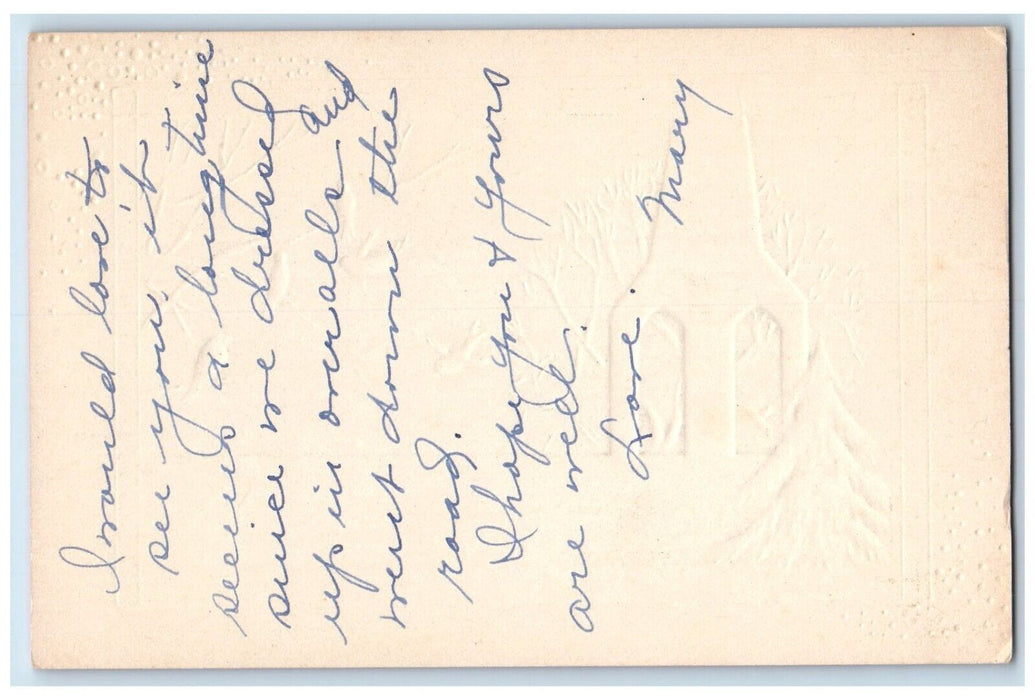 I would love to
see you, it
seems a long time
since we dressed
up in overalls and
went down the
road.
I hope you & yours
are well.
Love.
Mary